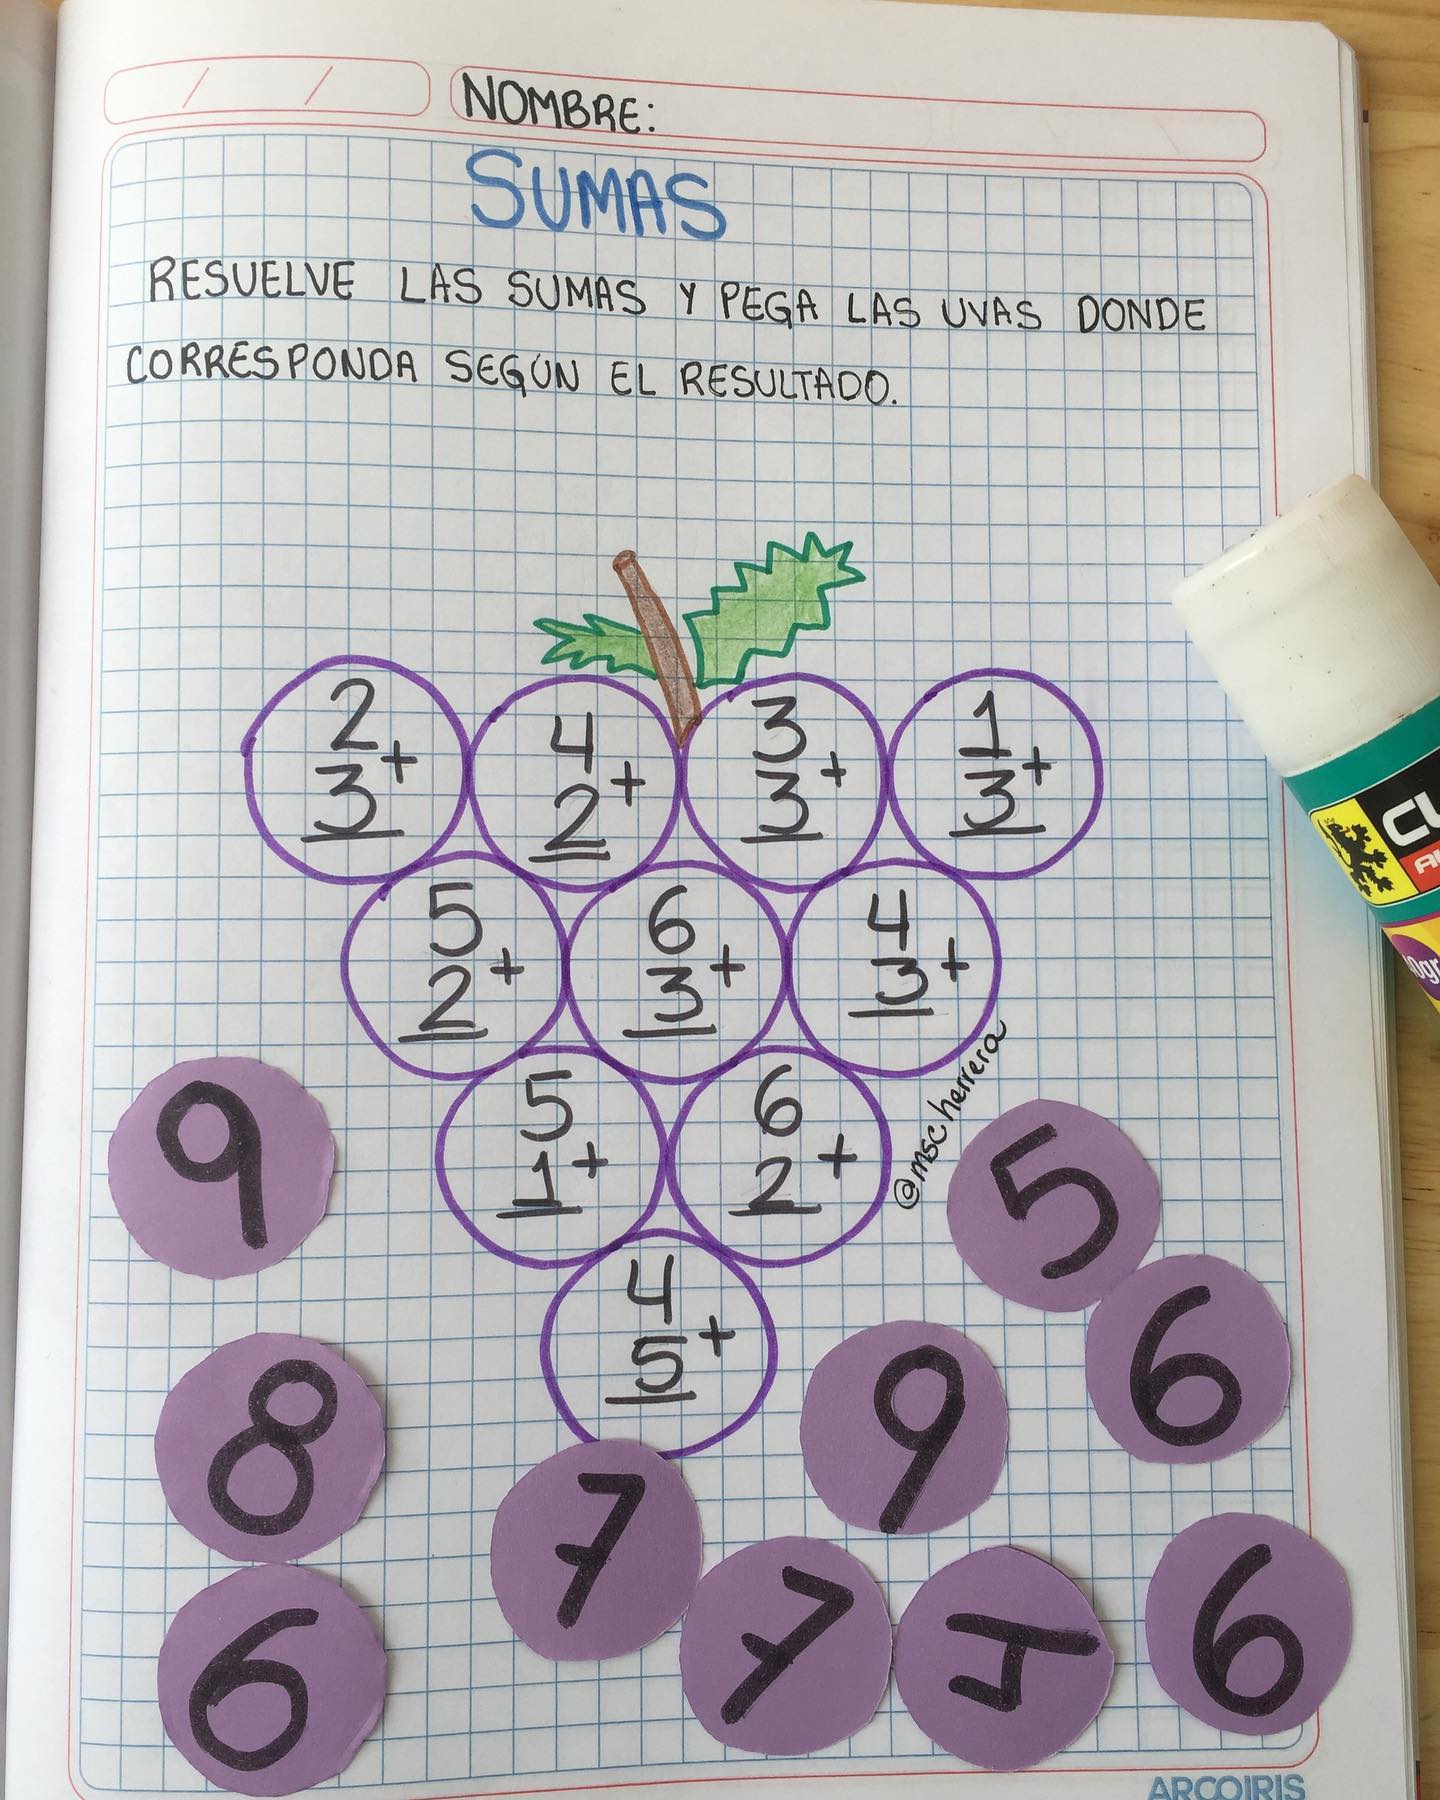 NOMBRE:
SUMAS
RESUELVE LAS SUMAS Y PEGA LAS UVAS DONDE
CORRESPONDA SEGÚN EL RESULTADO.
2
3+
4
2+
3
3+
1
3+
5
2+
6
3+
4
3+
5
1+
6
2+
4
5+
@mscherrera
9
8
6
7
7
4
9
5
6
6
ARCOIRIS